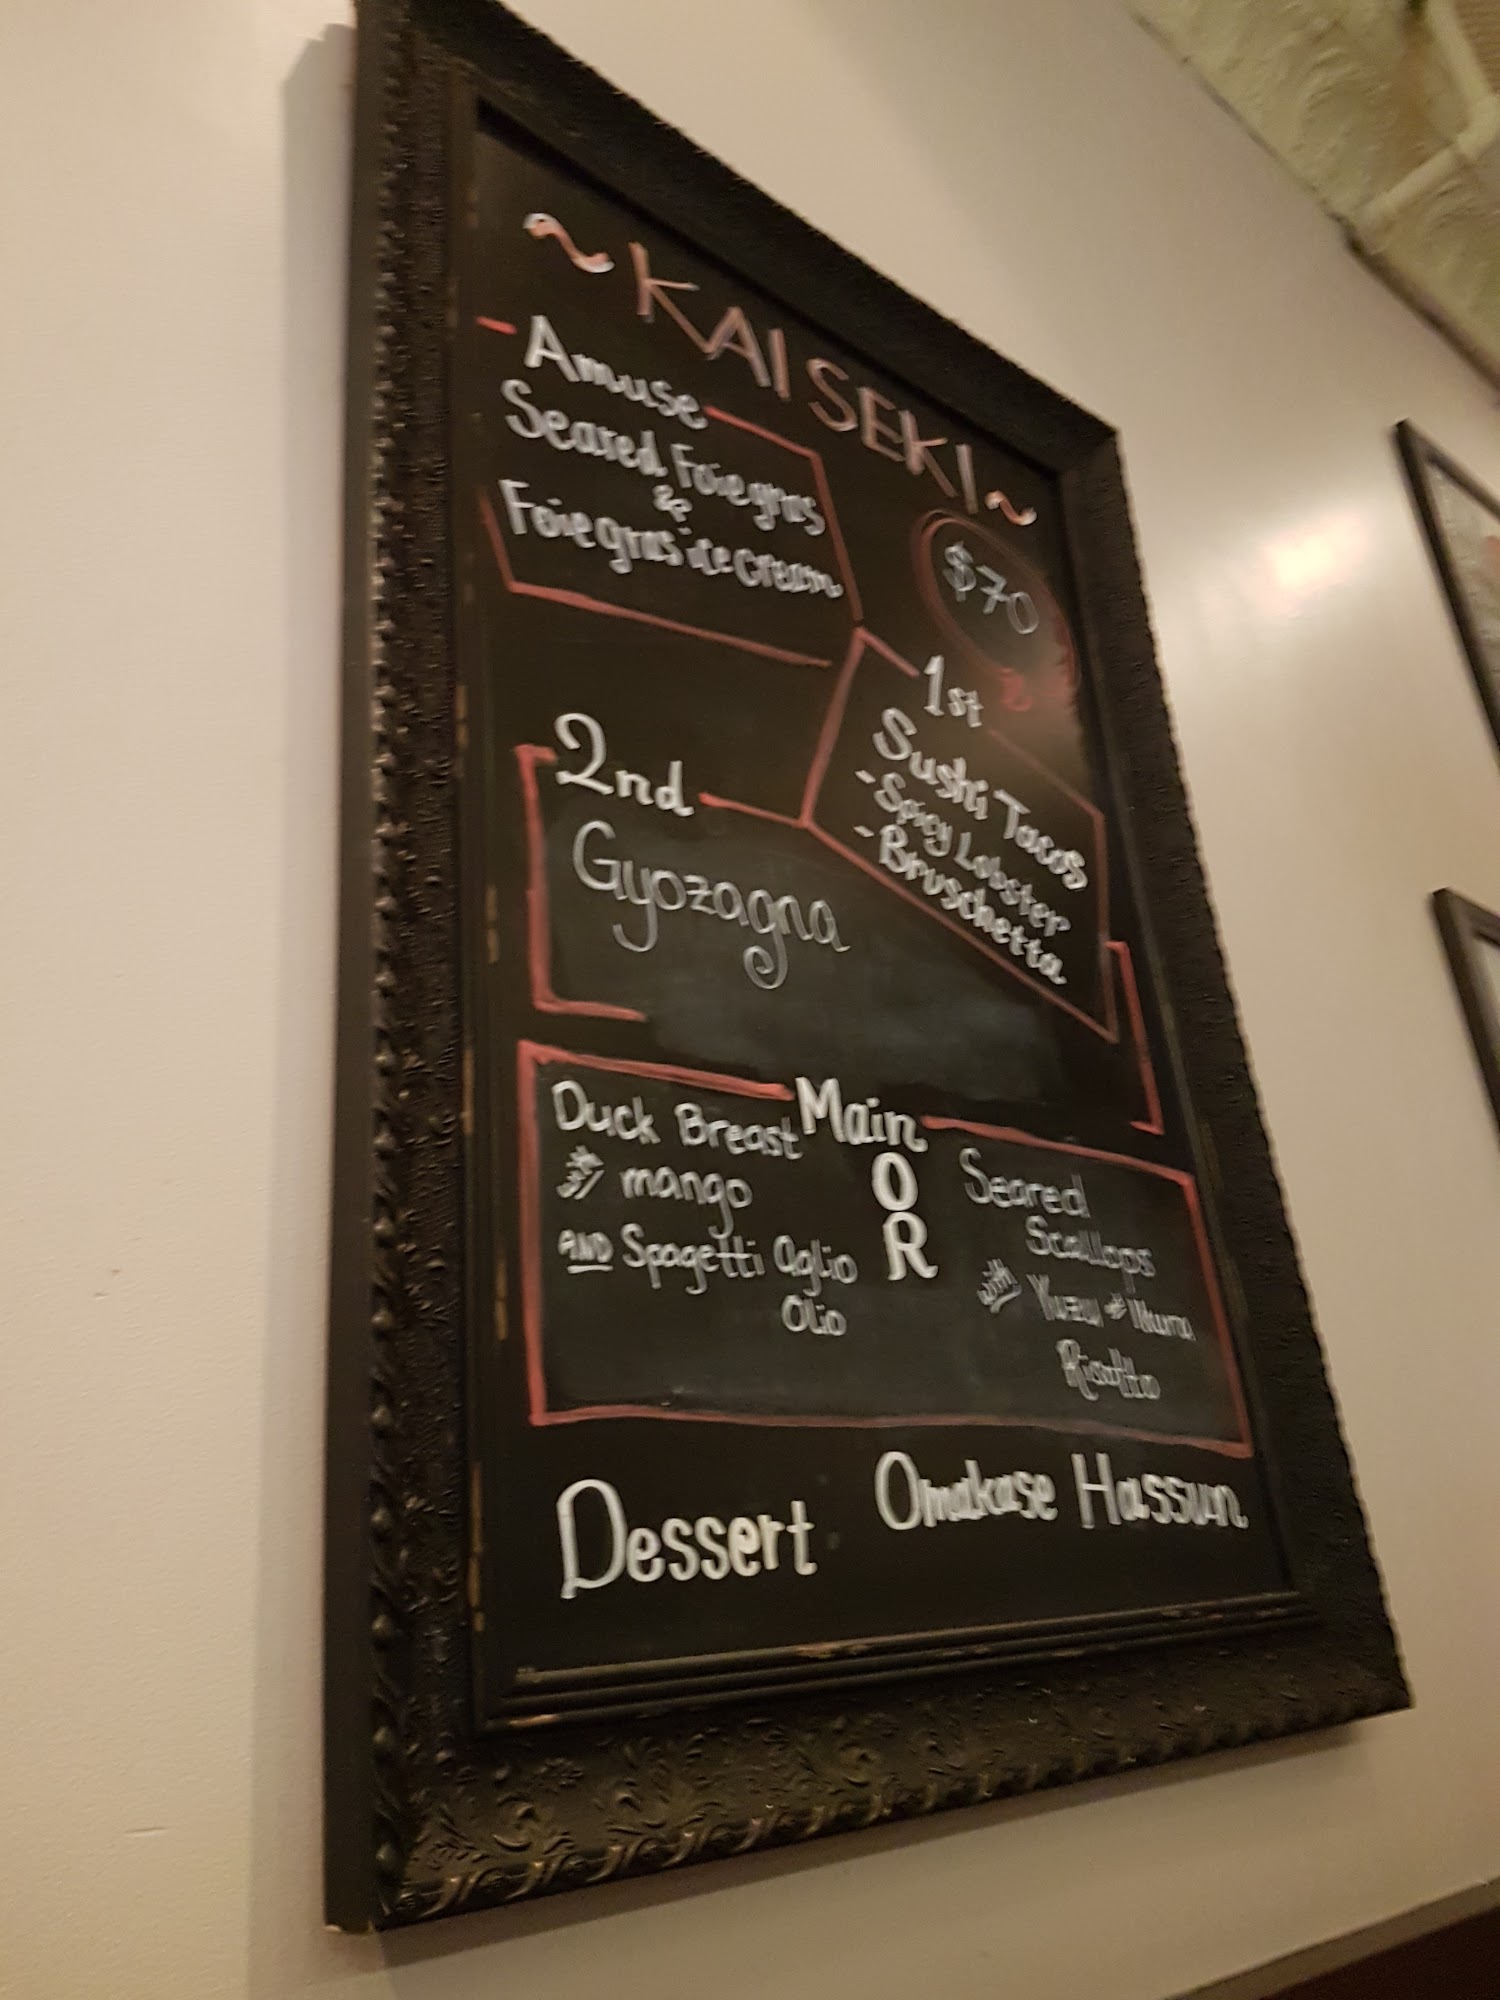 ~ KAISEKI ~
$70
Amuse
Seared Foie gras
&
Foie gras ice cream
1st
Sushi Tacos
- Spicy Lobster
- Bruschetta
2nd
Gyozagna
Main
Duck Breast
mango
AND Spagetti Aglio
Olio
O
R
Seared
Scallops
with Yuzu & Ikura
Risotto
Dessert
Omakase Hassun